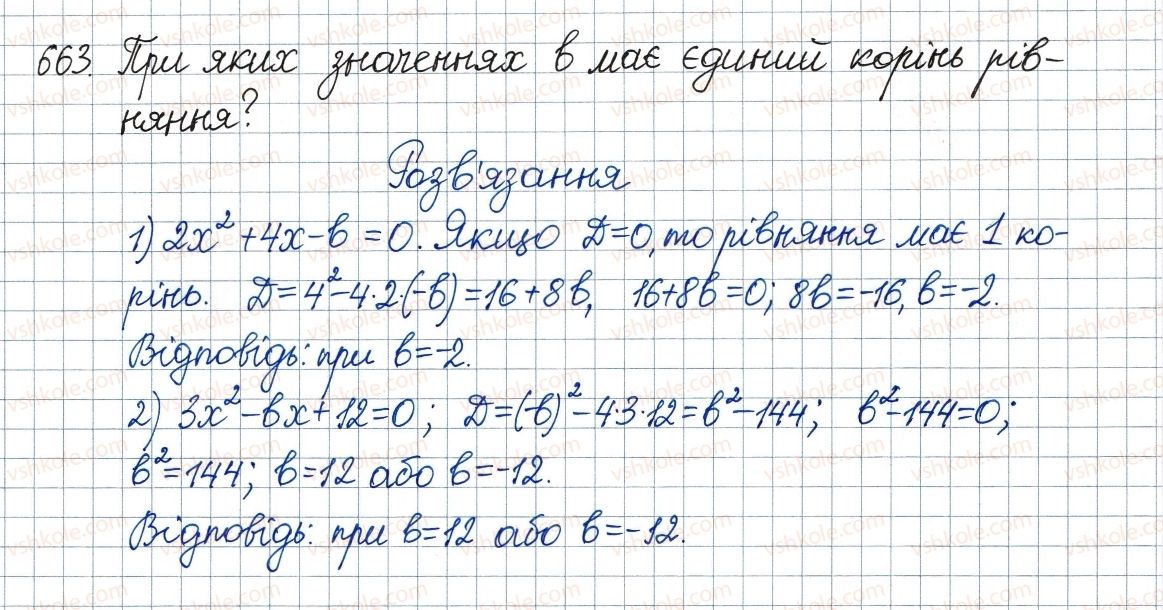 663. При яких значеннях b має єдиний корінь рів-
няння?
Розв'язання
1) 2x² + 4x - b = 0. Якщо D=0, то рівняння має 1 ко-
рінь. D = 4² - 4·2·(-b) = 16 + 8b, 16+8b=0; 8b=-16, b=-2.
Відповідь: при b=-2.
2) 3x² - bx + 12 = 0; D = (-b)² - 4·3·12 = b² - 144; b² - 144 = 0;
b² = 144; b = 12 або b = -12.
Відповідь: при b = 12 або b = -12.